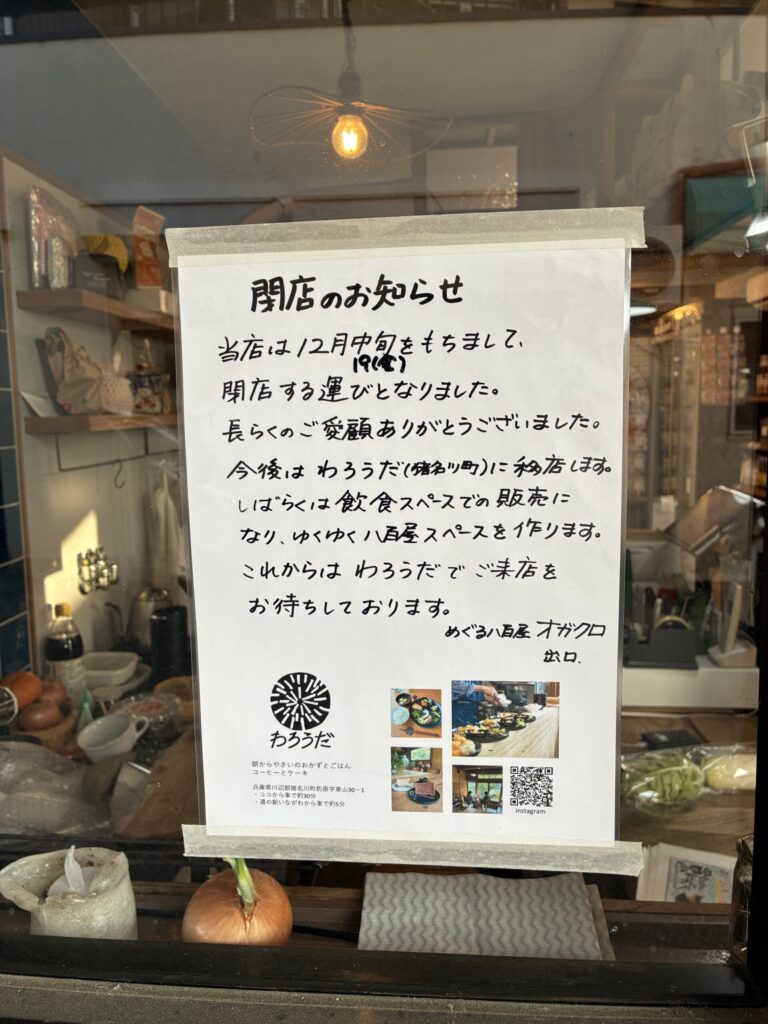 閉店のお知らせ
当店は12月中旬をもちまして、
19(金)
閉店する運びとなりました。
長らくのご愛顧ありがとうございました。
今後は わろうだ(猪名川町)に移店します。
しばらくは飲食スペースでの販売に
なり、ゆくゆく八百屋スペースを作ります。
これからは わろうだで ご来店を
お待ちしております。
めぐる八百屋 オガクロ
出口.
わろうだ
朝からやさいのおかずとごはん
コーヒーとケーキ
兵庫県川辺郡猪名川町栃原字東山30−1
・ココから車で約30分
・道の駅いながわから車で約5分
instagram